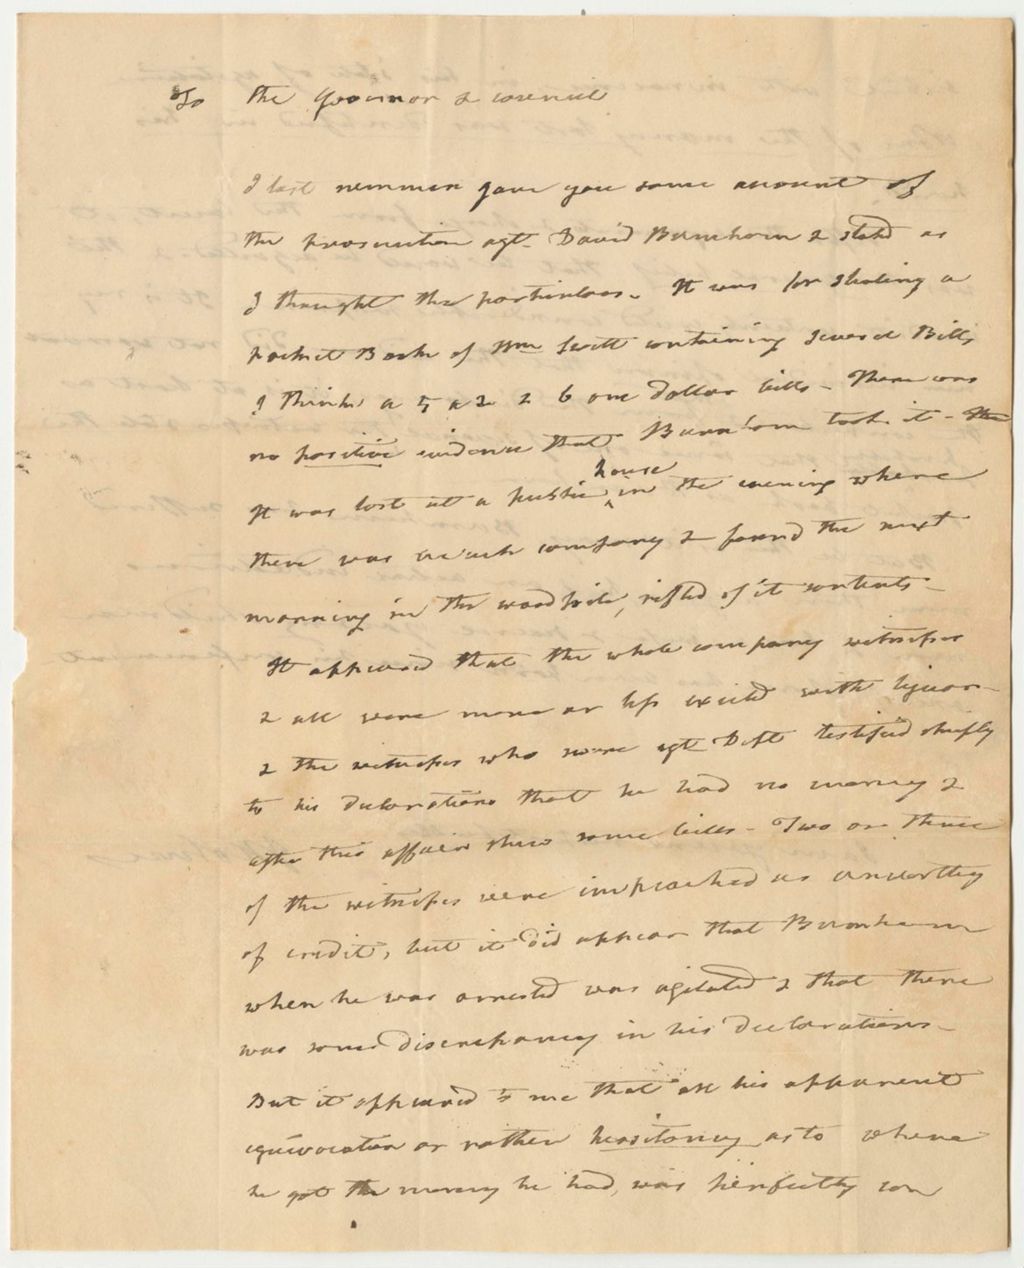 To the Governor & council
I last summer gave you some account of
the prosecution agt. David Burnham & stated as
I thought the particulars. It was for stealing a
pocket Book of Wm Scott containing several Bills
I think a 5 a 2 & 6 one dollar bills - There was
no positive evidence that Burnham took it -
house
It was lost at a public in the evening where
there was much company & found the next
morning in the wood pile, rifled of it contents -
It appeared that the whole company witnesses
& all were more or less excited with liquor -
& the witnesses who were agt Deft testified chiefly
to his declarations that he had no money &
after this affair shew some bills - Two or three
of the witnesses were impeached as unworthy
of credit, but it did appear that Burnham
when he was arrested was agitated & that there
was some discrepancy in his declarations -
But it appeared to me that all his apparent
equivocation or rather hesitancy as to where
he got the money he had, was perfectly con